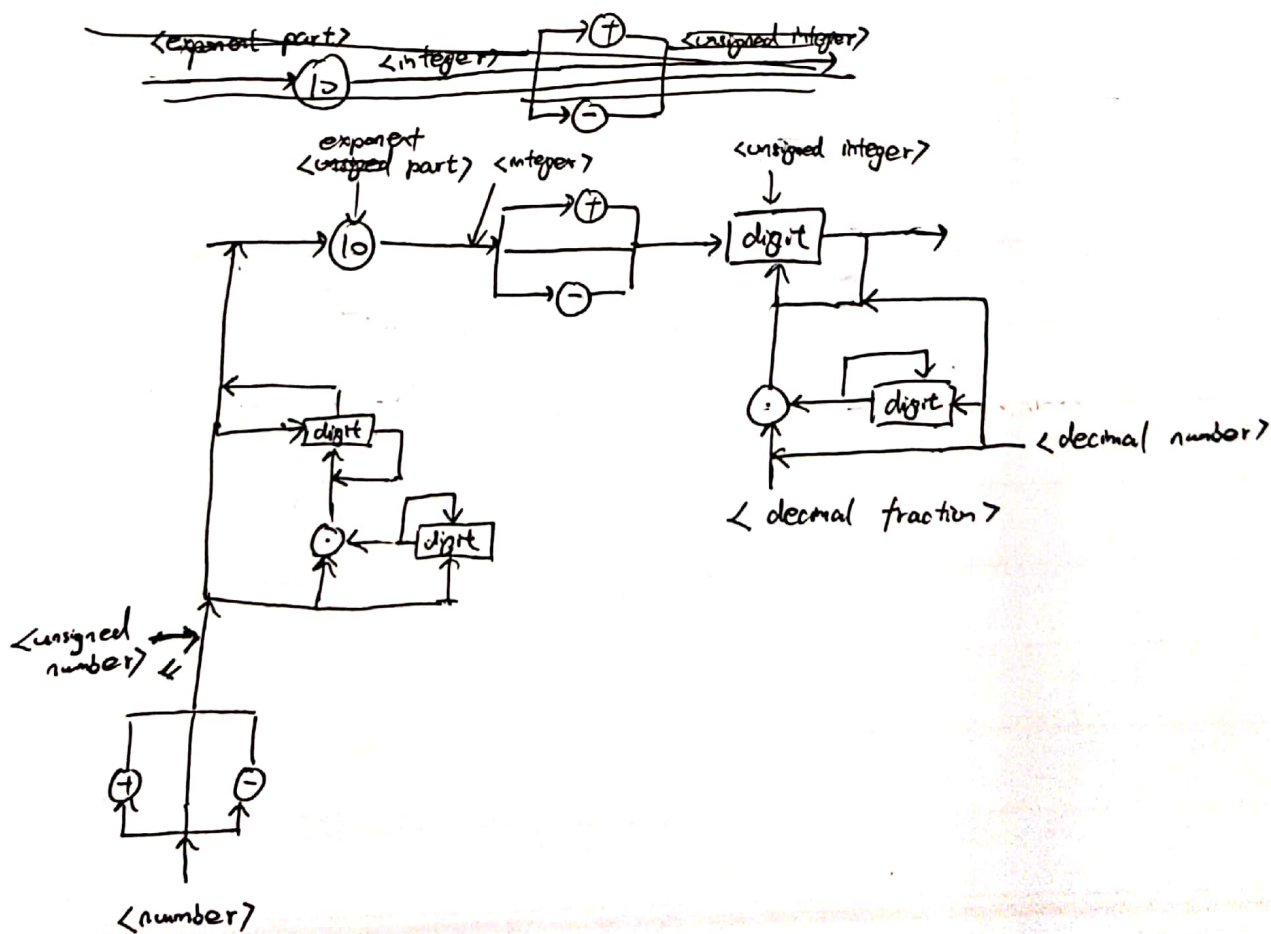 <exponent part>
<integer>
<unsigned integer>
+
10
-
exponent
<unsigned part>
<integer>
<unsigned integer>
+
10
digit
-
digit
.
digit
<decimal number>
<decimal fraction>
.
digit
<unsigned
number>
+
-
<number>